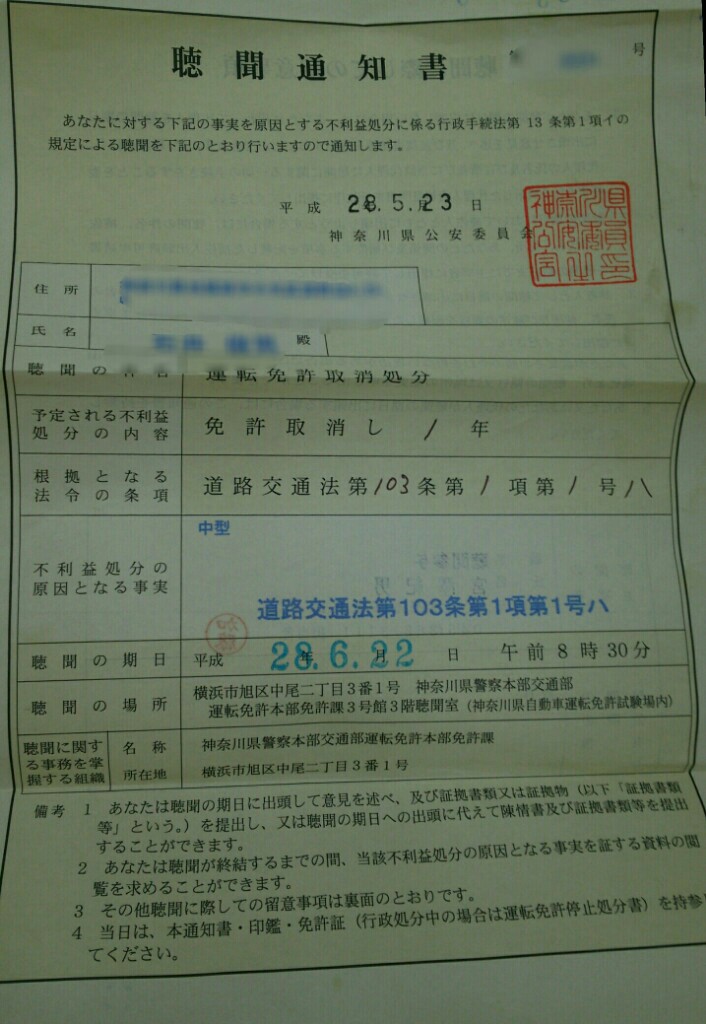 聴聞通知書
号
あなたに対する下記の事実を原因とする不利益処分に係る行政手続法第13条第1項イの
規定による聴聞を下記のとおり行いますので通知します。
平成 28.5.月23 日
神奈川県公安委員会
住所
氏名 殿
聴聞の件名 運転免許取消処分
予定される不利益
処分の内容
免許取消し 1 年
根拠となる
法令の条項
道路交通法第103条第1項第1号ハ
不利益処分の
原因となる事実
中型
道路交通法第103条第1項第1号ハ
聴聞の期日 平成 28.年6.月22 日 午前8時30分
聴聞の場所
横浜市旭区中尾二丁目3番1号 神奈川県警察本部交通部
運転免許本部免許課3号館3階聴聞室(神奈川県自動車運転免許試験場内)
聴聞に関す
る事務を掌
握する組織
名称 神奈川県警察本部交通部運転免許本部免許課
所在地 横浜市旭区中尾二丁目3番1号
備考 1 あなたは聴聞の期日に出頭して意見を述べ、及び証拠書類又は証拠物(以下「証拠書類
等」という。)を提出し、又は聴聞の期日への出頭に代えて陳情書及び証拠書類等を提出
することができます。
2 あなたは聴聞が終結するまでの間、当該不利益処分の原因となる事実を証する資料の閲
覧を求めることができます。
3 その他聴聞に際しての留意事項は裏面のとおりです。
4 当日は、本通知書・印鑑・免許証(行政処分中の場合は運転免許停止処分書)を持参し
てください。